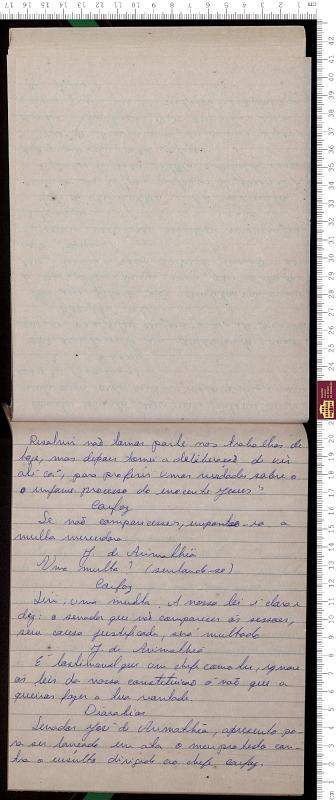 Resolvi não tomar parte nos trabalhos de
hoje, mas depois tomei a deliberação de vir
até cá, para proferir umas verdades sobre o
o infame processo do inocente Jesus?
Caifaz
Se não comparecesses, impontar-se-ia a
multa
J. de Arimathéa
Uma multa? (sentando-se)
Caifaz
Sim, uma multa. A nossa lei é clara e
diz: o senador que não comparecer ás sessões,
sem causa justificada, será multado
J. de Arimathéa
É lastimavel que um chefe como tu, ignore
as leis da nossa constituição a não que a
queiras fazer a tua vontade.
Diarabias
Senador José de Arimathéa, apresento pa-
ra ser lavrado em ata o meu protesto con-
tra o insulto dirigido ao chefe Caifaz.